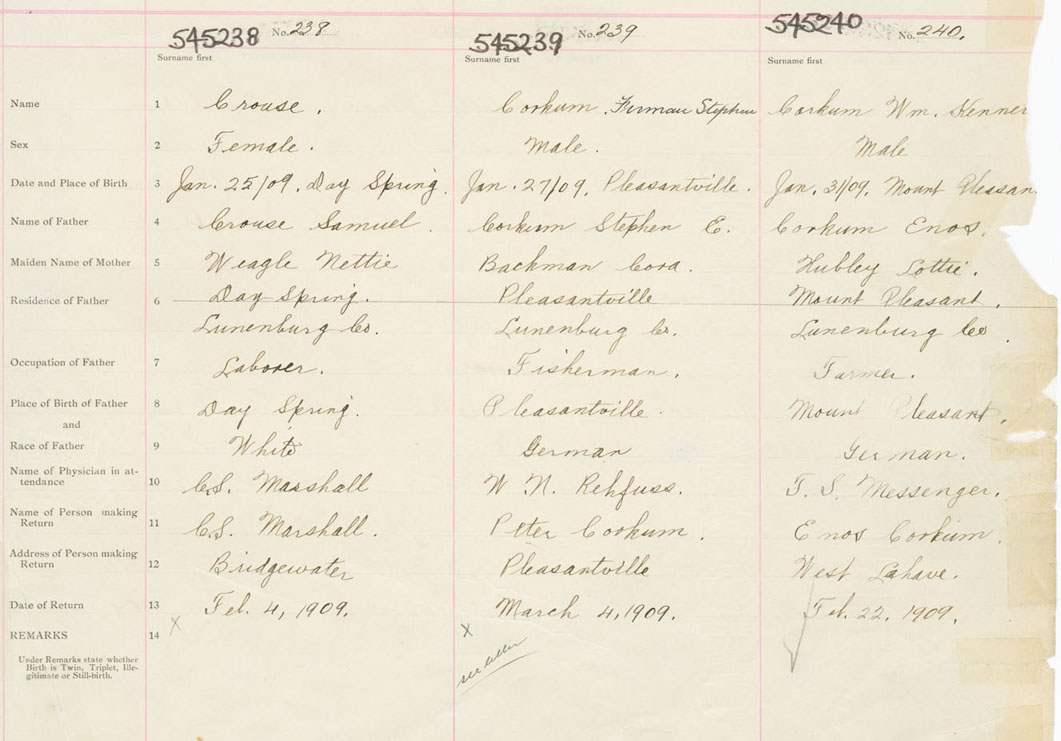 545238 No. 238 545239 No. 239 545240 No. 240.
Surname first Surname first Surname first
Name 1 Crouse. Corkum, Firman Stephen Corkum Wm. Kenner
Sex 2 Female. Male. Male
Date and Place of Birth 3 Jan. 25/09. Day Spring. Jan. 27/09. Pleasantville. Jan. 31/09. Mount Pleasan
Name of Father 4 Crouse Samuel. Corkum Stephen E. Corkum Enos.
Maiden Name of Mother 5 Weagle Nettie Backman Cora. Hubley Lottie.
Residence of Father 6 Day Spring. Pleasantville Mount Pleasant.
Lunenburg Co. Lunenburg Co. Lunenburg Co.
Occupation of Father 7 Laborer. Fisherman. Farmer.
Place of Birth of Father 8 Day Spring. Pleasantville. Mount Pleasant.
and
Race of Father 9 White German German.
Name of Physician in at-
tendance 10 C.S. Marshall W. N. Rehfuss. T. S. Messenger.
Name of Person making
Return 11 C.S. Marshall. Peter Corkum. Enos Corkum.
Address of Person making
Return 12 Bridgewater Pleasantville West Lahave.
Date of Return 13 Feb. 4, 1909. March 4, 1909. Feb. 22. 1909.
REMARKS 14 X X
see letter
Under Remarks state whether
Birth is Twin, Triplet, Ille-
gitimate or Still-birth.